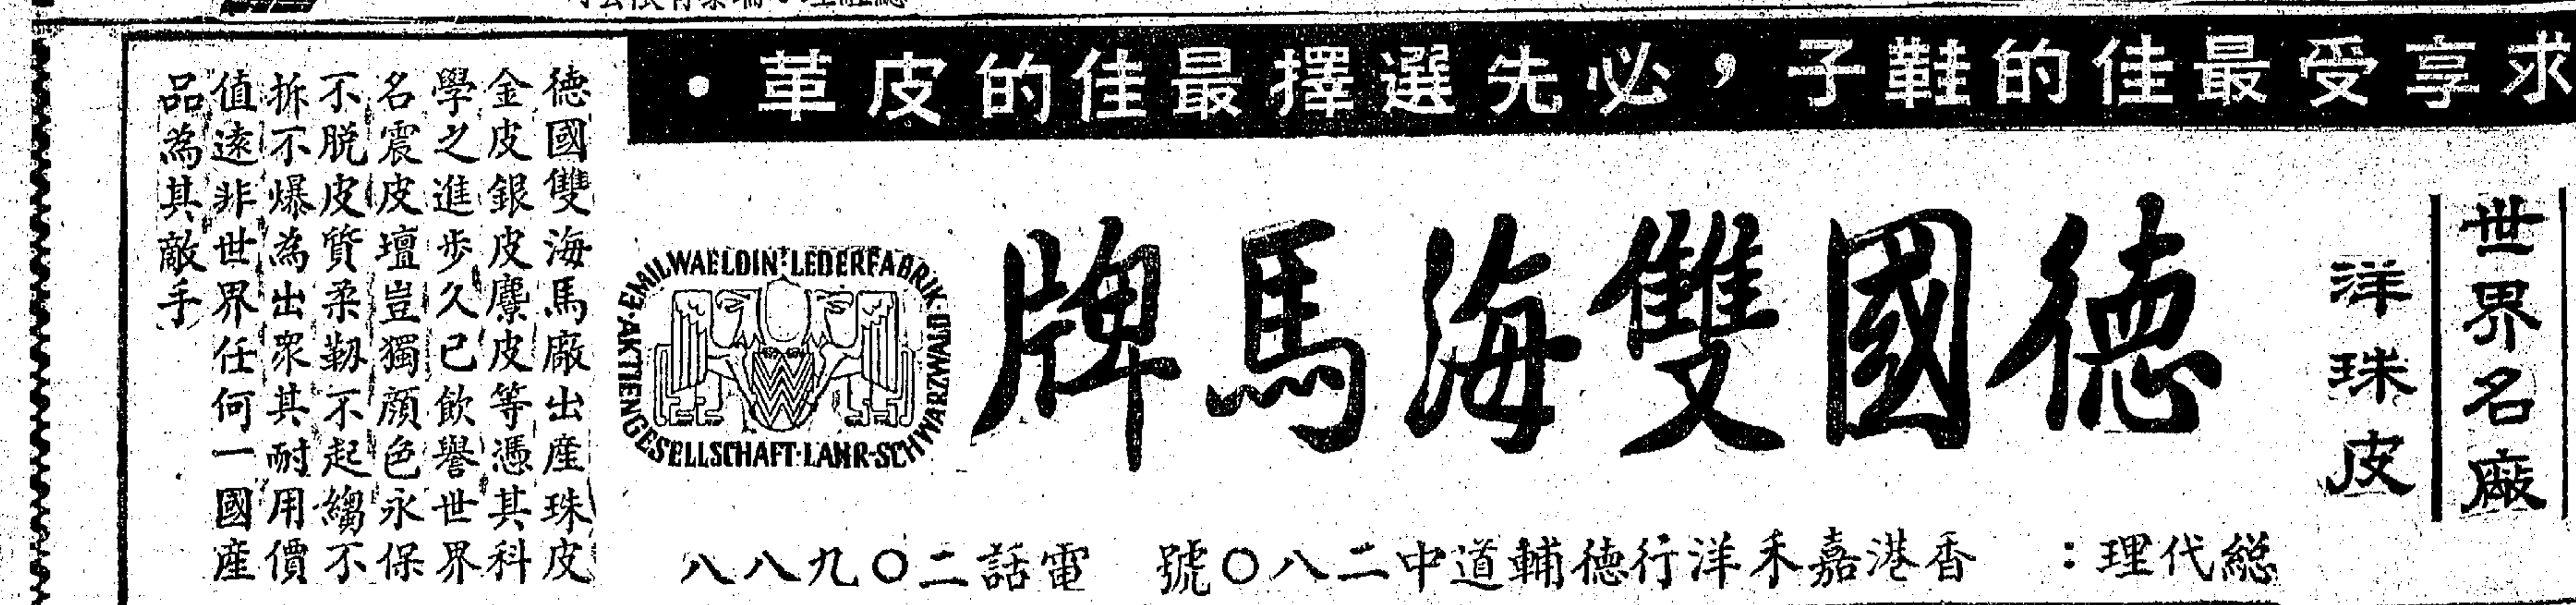 求享受最佳的鞋子，必先選擇最佳的皮革·
世界名廠
洋珠皮
德國雙海馬牌
EMIL WAELDIN LEDERFABRIK·AKTIENGESELLSCHAFT·LAHR-SCHWARZWALD
總代理：香港嘉禾洋行德輔道中二八〇號 電話二〇九八八
德國雙海馬廠出產珠皮
金皮銀皮麖皮等憑其科
學之進步久已飲譽世界
名震皮壇豈獨顏色永保
不脫皮質柔韌不起縐不
拆不爆為出眾其耐用價
值遠非世界任何一國產
品為其敵手